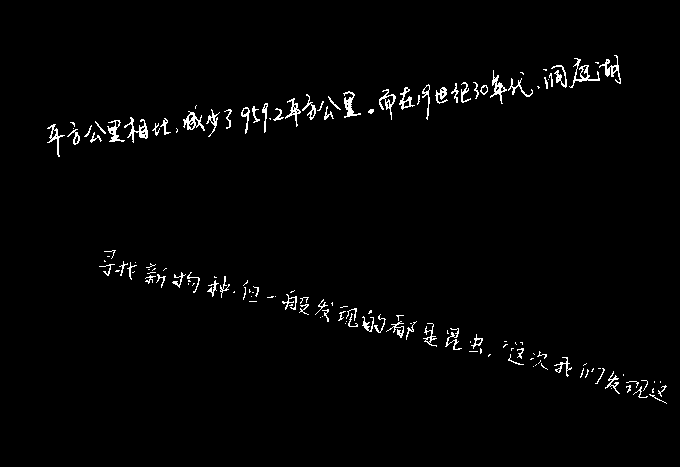 平方公里相比,减少了959.2平方公里。而在19世纪30年代,洞庭湖
寻找新物种,但一般发现的都是昆虫,“这次我们发现这